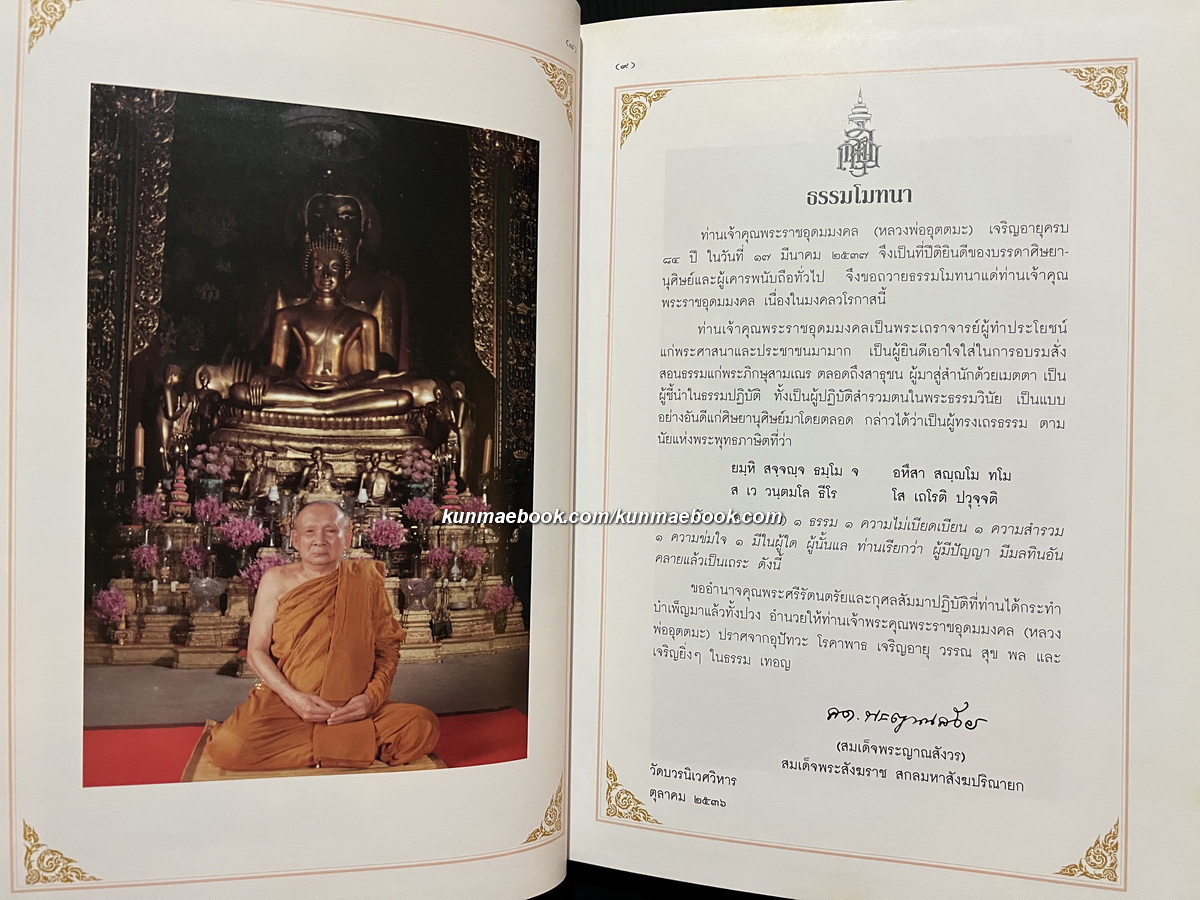 (๘)
(๙)
ธรรมโมทนา
ท่านเจ้าคุณพระราชอุดมมงคล (หลวงพ่ออุตตมะ) เจริญอายุครบ
๘๔ ปี ในวันที่ ๑๗ มีนาคม ๒๕๓๗ จึงเป็นที่ปีติยินดีของบรรดาศิษยา-
นุศิษย์และผู้เคารพนับถือทั่วไป จึงขอถวายธรรมโมทนาแด่ท่านเจ้าคุณ
พระราชอุดมมงคล เนื่องในมงคลวโรกาสนี้
ท่านเจ้าคุณพระราชอุดมมงคลเป็นพระเถราจารย์ผู้ทำประโยชน์
แก่พระศาสนาและประชาชนมามาก เป็นผู้ยินดีเอาใจใส่ในการอบรมสั่ง
สอนธรรมแก่พระภิกษุสามเณร ตลอดถึงสาธุชน ผู้มาสู่สำนักด้วยเมตตา เป็น
ผู้ชี้นำในธรรมปฏิบัติ ทั้งเป็นผู้ปฏิบัติสำรวมตนในพระธรรมวินัย เป็นแบบ
อย่างอันดีแก่ศิษยานุศิษย์มาโดยตลอด กล่าวได้ว่าเป็นผู้ทรงเถรธรรม ตาม
นัยแห่งพระพุทธภาษิตที่ว่า
ยมฺหิ สจฺจญฺจ ธมฺโม จ อหึสา สญฺญโม ทโม
ส เว วนฺตมโล ธีโร โส เถโรติ ปวุจฺจติ
kunmaebook.com/kunmaebook.com
๑ ธรรม ๑ ความไม่เบียดเบียน ๑ ความสำรวม
๑ ความข่มใจ ๑ มีในผู้ใด ผู้นั้นแล ท่านเรียกว่า ผู้มีปัญญา มีมลทินอัน
คลายแล้วเป็นเถระ ดังนี้
ขออำนาจคุณพระศรีรัตนตรัยและกุศลสัมมาปฏิบัติที่ท่านได้กระทำ
บำเพ็ญมาแล้วทั้งปวง อำนวยให้ท่านเจ้าพระคุณพระราชอุดมมงคล (หลวง
พ่ออุตตมะ) ปราศจากอุปัทวะ โรคาพาธ เจริญอายุ วรรณ สุข พล และ
เจริญยิ่งๆ ในธรรม เทอญ
(สมเด็จพระญาณสังวร)
สมเด็จพระสังฆราช สกลมหาสังฆปริณายก
วัดบวรนิเวศวิหาร
ตุลาคม ๒๕๓๖